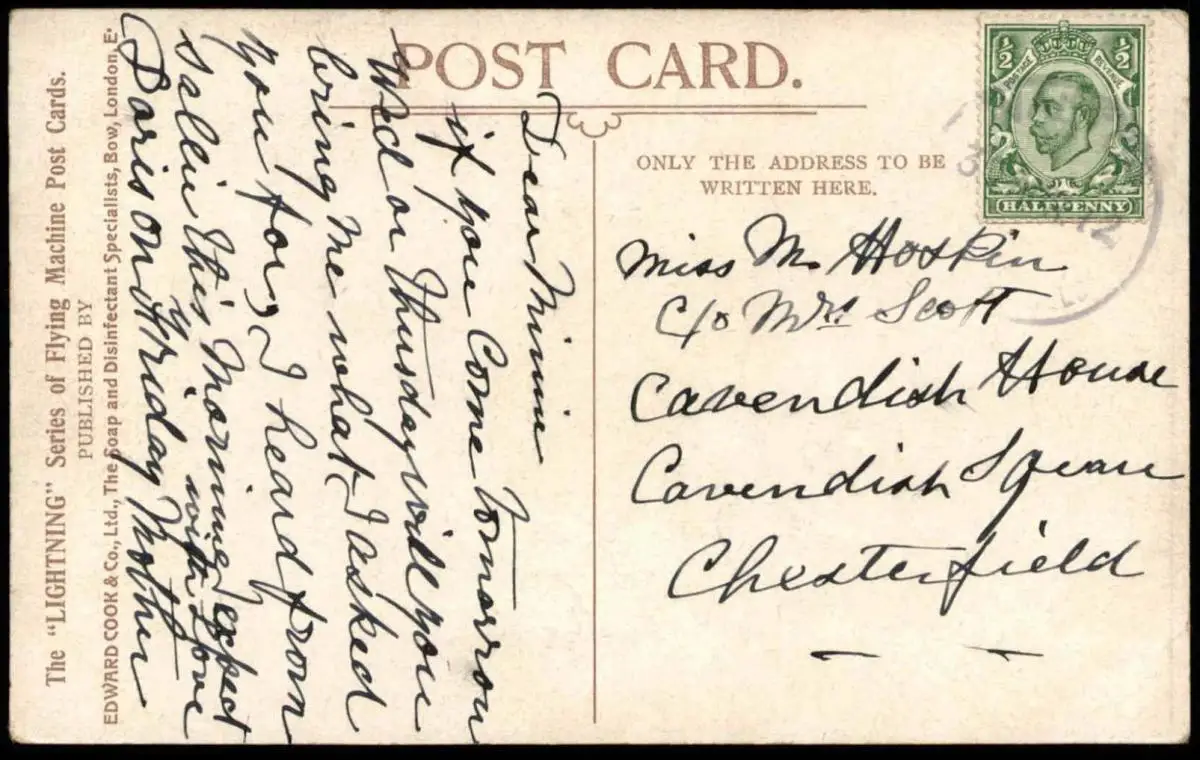 POST CARD.
ONLY THE ADDRESS TO BE
WRITTEN HERE.
½ ½
POSTAGE REVENUE
HALFPENNY
12
Miss M. Hoskin
c/o Mrs. Scott
Cavendish House
Cavendish Square
Chesterfield
Dear Minnie
if you Come Tomorrow
Wed or Thusday will you
bring Me what I asked
you for, I heard from
Sallie this Morning expect
Doris on Friday Mother
with Love
The "LIGHTNING" Series of Flying Machine Post Cards.
PUBLISHED BY
EDWARD COOK & Co., Ltd., The Soap and Disinfectant Specialists, Bow, London, E.